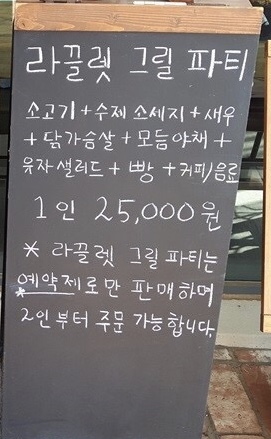 라끌렛 그릴 파티
소고기 + 수제 소세지 + 새우
+ 닭가슴살 + 모듬야채 +
유자샐러드 + 빵 + 커피/음료
1인 25,000원
* 라끌렛 그릴 파티는
*예약제로만 판매하며
2인부터 주문 가능합니다.